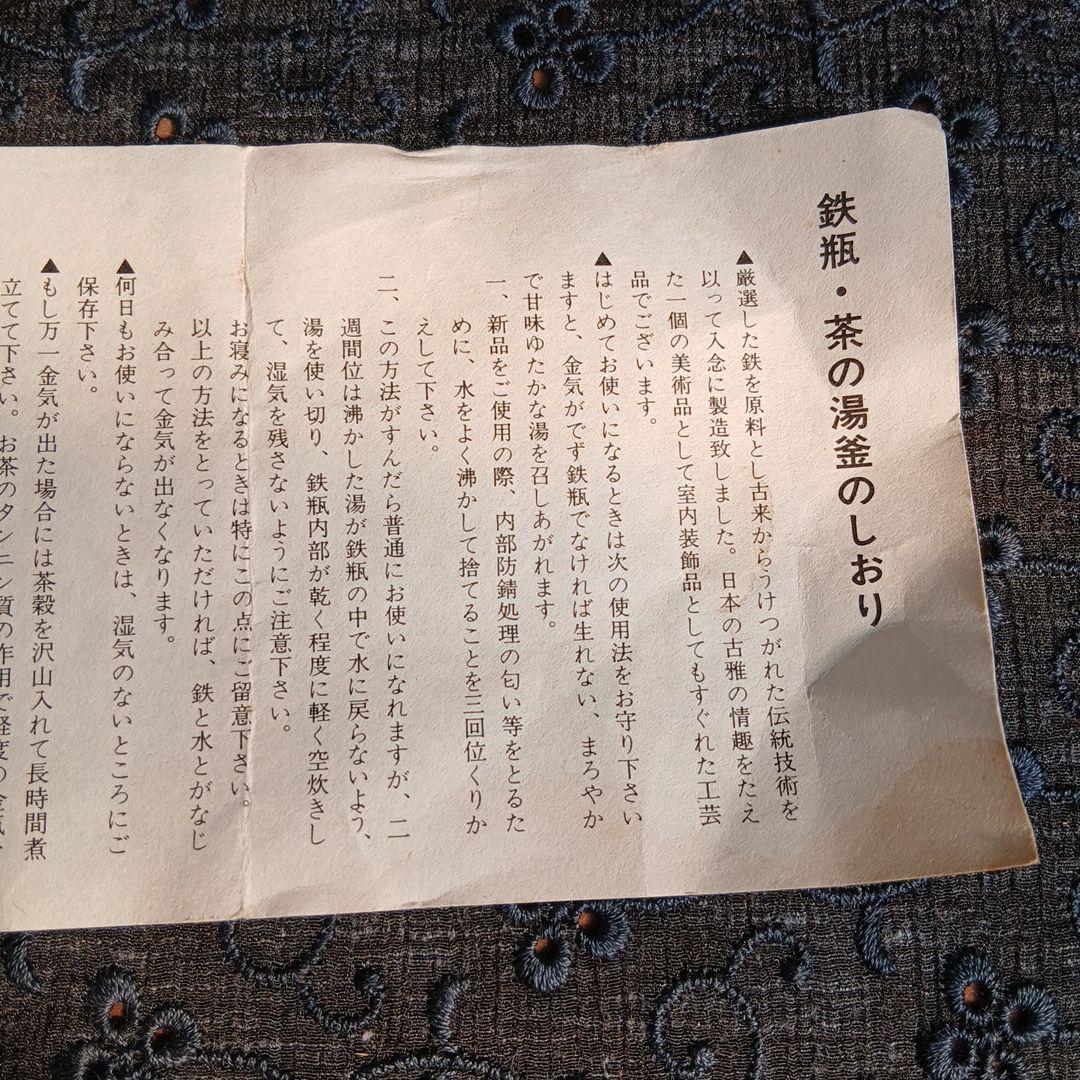 鉄瓶・茶の湯釜のしおり
▲厳選した鉄を原料とし古来からうけつがれた伝統技術を
以って入念に製造致しました。日本の古雅の情趣をたたえ
た一個の美術品として室内装飾品としてもすぐれた工芸
品でございます。
▲はじめてお使いになるときは次の使用法をお守り下さい
ますと、金気がでず鉄瓶でなければ生れない、まろやか
で甘味ゆたかな湯を召しあがれます。
一、新品をご使用の際、内部防錆処理の匂い等をとるた
めに、水をよく沸かして捨てることを三回位くりか
えして下さい。
二、この方法がすんだら普通にお使いになれますが、二
週間位は沸かした湯が鉄瓶の中で水に戻らないよう、
湯を使い切り、鉄瓶内部が乾く程度に軽く空炊きし
て、湿気を残さないようにご注意下さい。
お寝みになるときは特にこの点にご留意下さい。
以上の方法をとっていただければ、鉄と水とがなじ
み合って金気が出なくなります。
▲何日もお使いにならないときは、湿気のないところにご
保存下さい。
▲もし万一金気が出た場合には茶殻を沢山入れて長時間煮
立てて下さい。お茶のタンニン質の作用で軽度の金気、